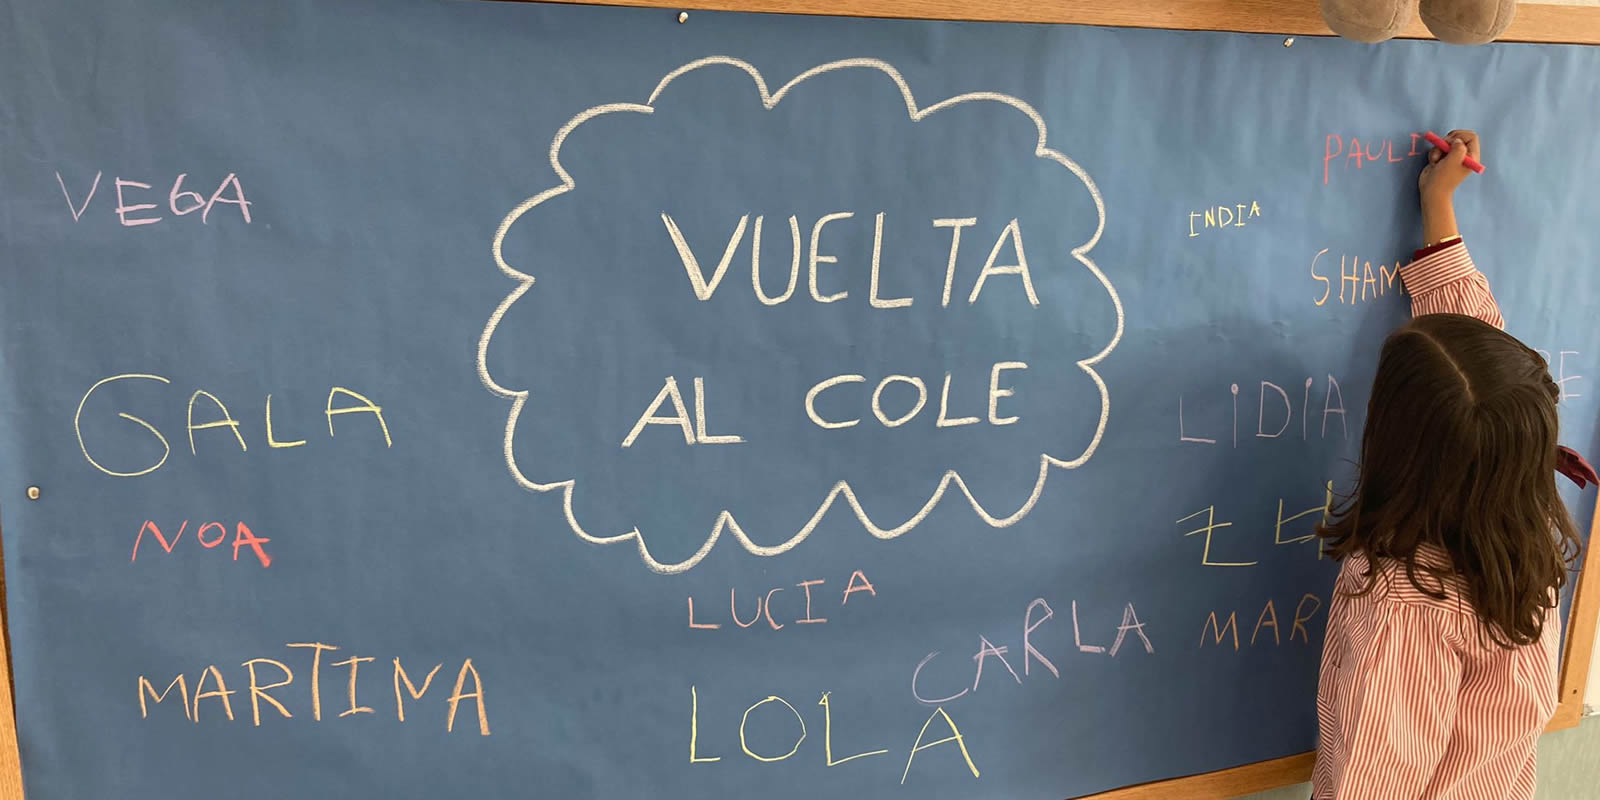 VUELTA
AL COLE
VEGA
GALA
NOA
MARTINA
LUCIA
LOLA
CARLA
PAULI
INDIA
SHAM
LIDIA
MAR